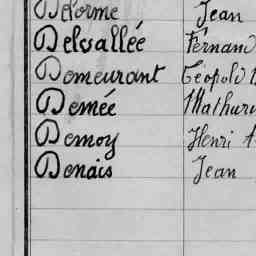 Delorme Jean
Delvallée Fernan
Demeurant Léopold
Demée Mathuri
Demoy Henri A
Denais Jean